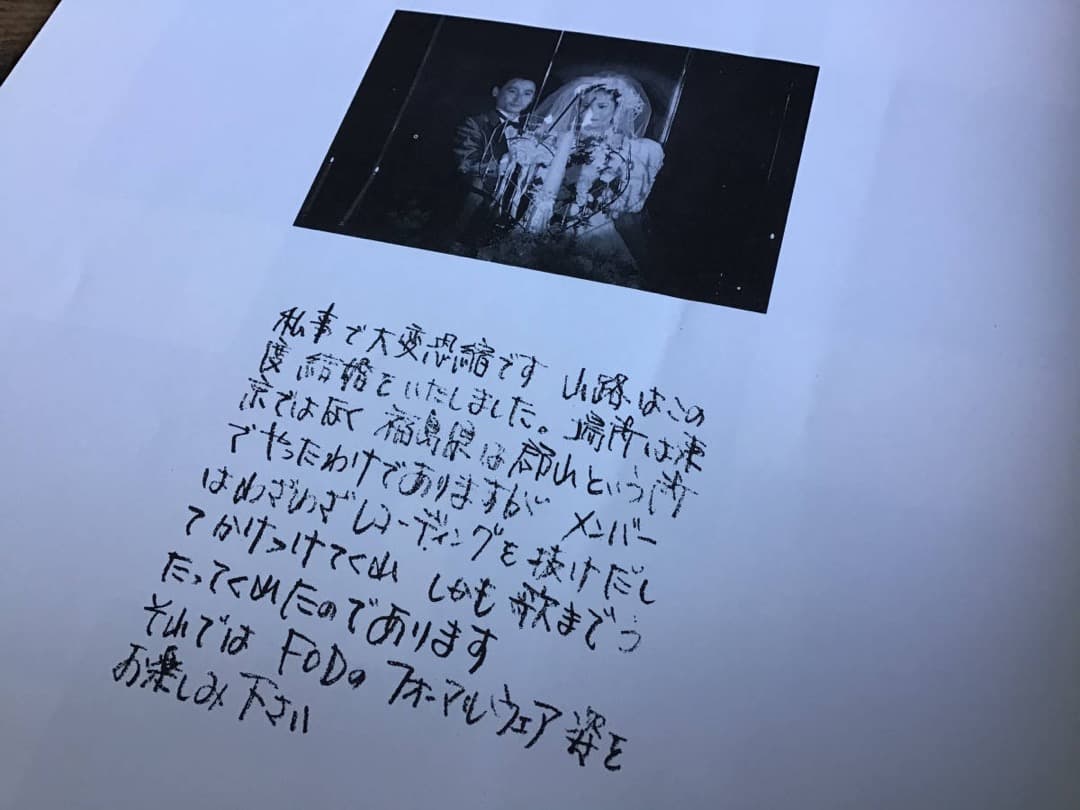 私事で大変恐縮です 山路はこの
度 結婚をいたしました。場所は東
京では无く 福島県は郡山という所
でやったわけでありますが メンバー
はわざわざレコーディングを抜けだし
てかけつけてくれ しかも歌までう
たってくれたのであります
それでは FODの フォーマルウェア姿を
お楽しみ下さい